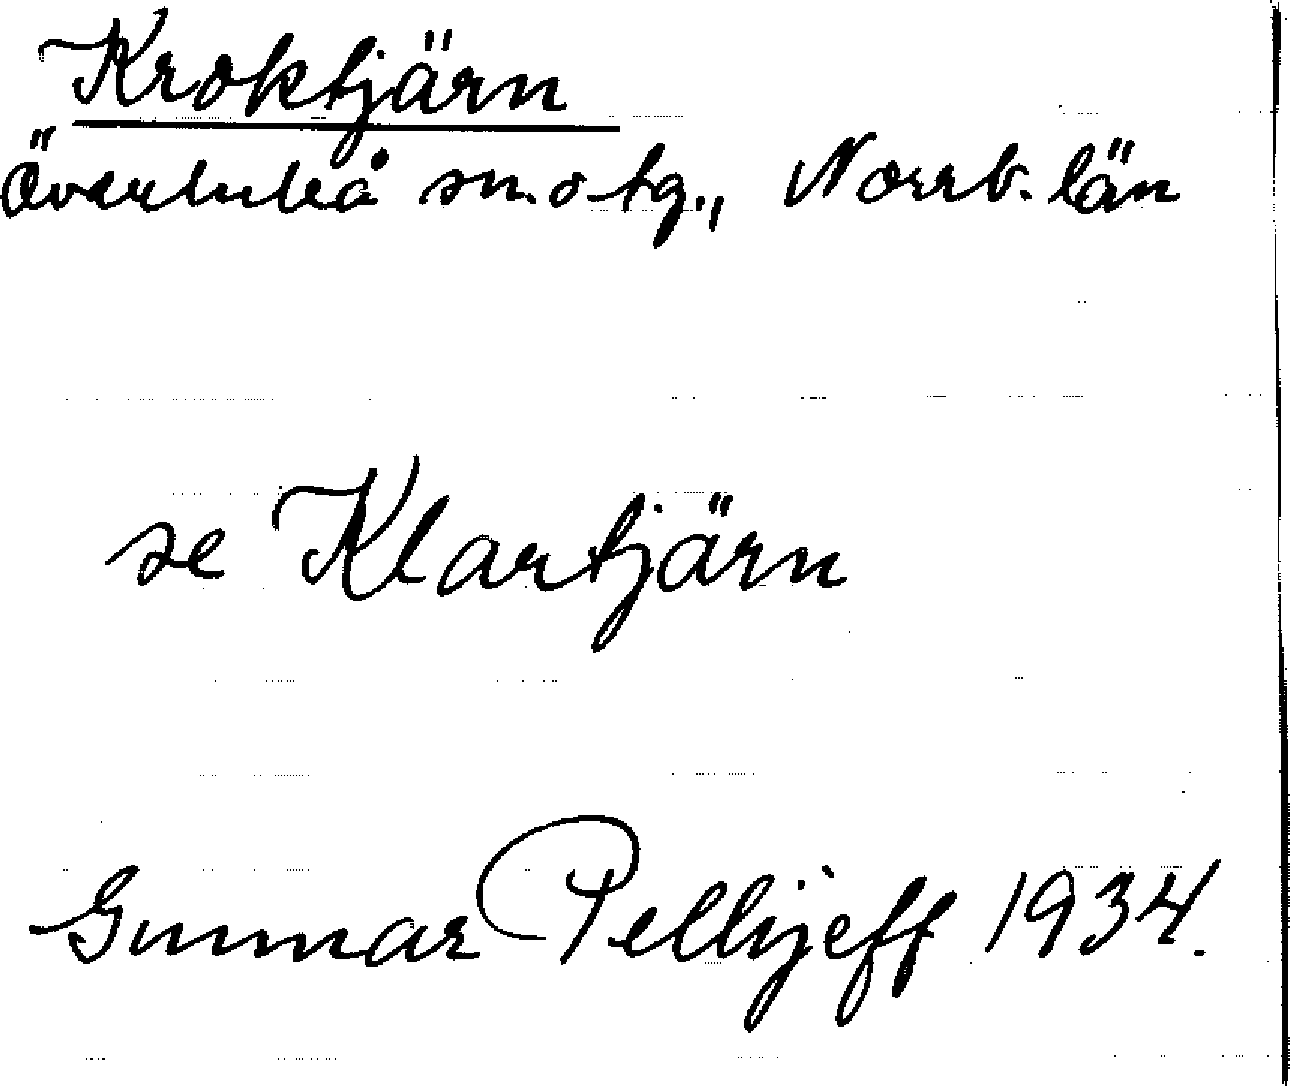 Kroktjärn
Överluleå sn. o tg., Norrb. län
se Klartjärn
Gunnar Pellijeff 1934.